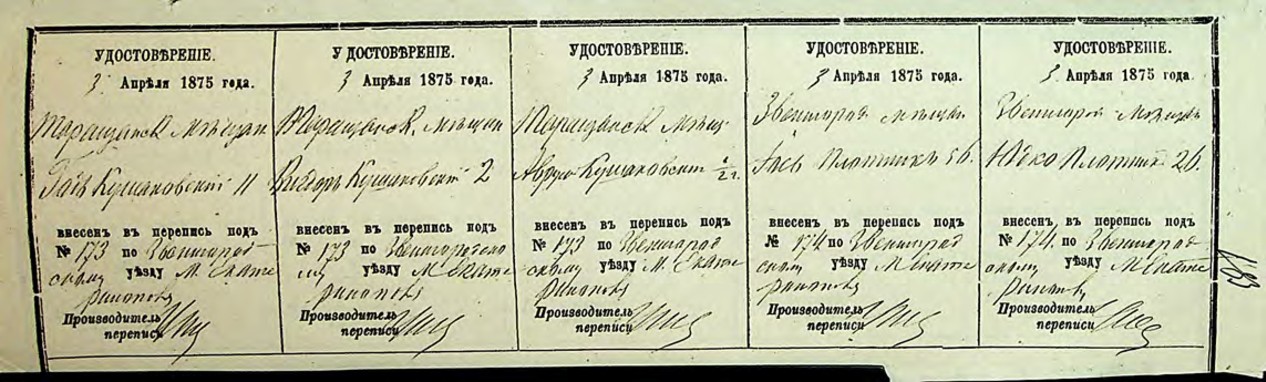 УДОСТОВѢРЕНІЕ.
3 Апрѣля 1875 года.
Таращанск мѣщан
Кушаковскій 11
внесенъ въ перепись подъ
№ 173 по Звенигород
скому уѣзду М. Екате
ринополь
Производитель
переписи
УДОСТОВѢРЕНІЕ.
3 Апрѣля 1875 года.
Таращанск. мѣщан
Кушаковскій 2
внесенъ въ перепись подъ
№ 173 по Звенигородско
му уѣзду М Екате
ринополь
Производитель
переписи
УДОСТОВѢРЕНІЕ.
3 Апрѣля 1875 года.
Таращанск мѣщ
Кушаковскій
внесенъ въ перепись подъ
№ 173 по Звенигород
скому уѣзду М. Екате
ринополь
Производитель
переписи
УДОСТОВѢРЕНІЕ.
3 Апрѣля 1875 года.
Звенигород мѣщан
Плотникъ
внесенъ въ перепись подъ
№ 174 по Звенигород
скому уѣзду М Екате
ринополь
Производитель
переписи
УДОСТОВѢРЕНІЕ.
3 Апрѣля 1875 года.
Звенигород мѣщан
Плотник
внесенъ въ перепись подъ
№ 174. по Звенигород
скому уѣзду М Екате
Производитель
переписи